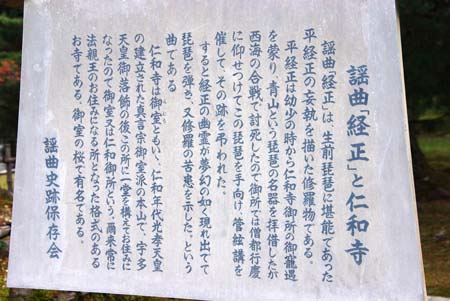 謡曲「経正」と仁和寺
謡曲「経正」は、生前琵琶に堪能であった
平経正の妄執を描いた修羅物である。
平経正は幼少の時から仁和寺御所の御寵遇
を蒙り、青山という琵琶の名器を拝借したが
西海の合戦で討死したので御所では僧都行慶
に仰せつけてこの琵琶を手向け、管絃講を
催して、その跡を弔われた。
すると経正の幽霊が夢幻の如く現れ出でて
琵琶を弾き、又修羅の苦患を示した。という
曲である
仁和寺は御室ともいい、仁和年代光孝天皇
の建立された真言宗御室派の本山で、宇多
天皇御落飾の後この所に一堂を構えてお住みに
なったので御室又は仁和御所という。爾来常に
法親王のお住みになる所となった格式のある
お寺である。御室の桜で有名である。
謡曲史跡保存会